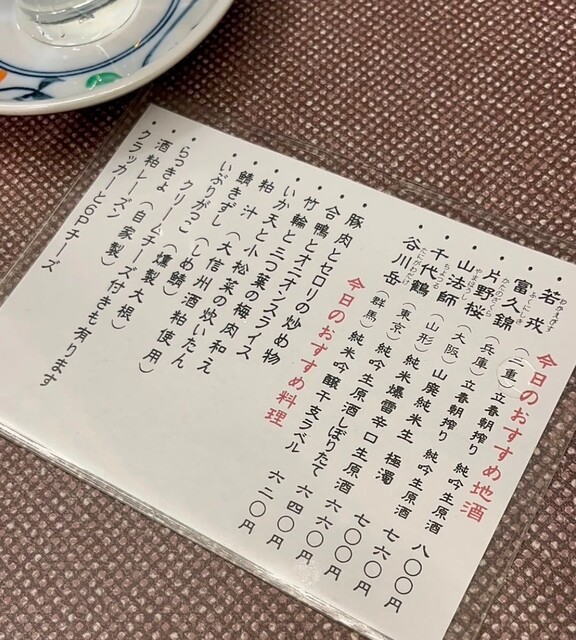 今日のおすすめ地酒
わかえびす
・若戎（三重）立春朝搾り 純吟生原酒 八〇〇円
ふくにしき
・富久錦（兵庫）立春朝搾り 純吟生原酒 七六〇円
かたのさくら
・片野桜（大阪）山廃純米生 極濁 七〇〇円
やまほうし
・山法師（山形）純米爆雷辛口生原酒 六六〇円
・千代鶴（東京）純吟生原酒しぼりたて 六四〇円
たにがわだけ
・谷川岳（群馬）純米吟醸干支ラベル 六二〇円
今日のおすすめ料理
・豚肉とセロリの炒め物
・合鴨とオニオンスライス
・竹輪と三つ葉の梅肉和え
・いか天と小松菜の炊いたん
・粕汁（大信州酒粕使用）
・鯖きずし（しめ鯖）
・いぶりがっこ（燻製大根）
・らっきょ クリームチーズ付きも有ります
・酒粕レーズン（自家製）
・クラッカーと6Pチーズ